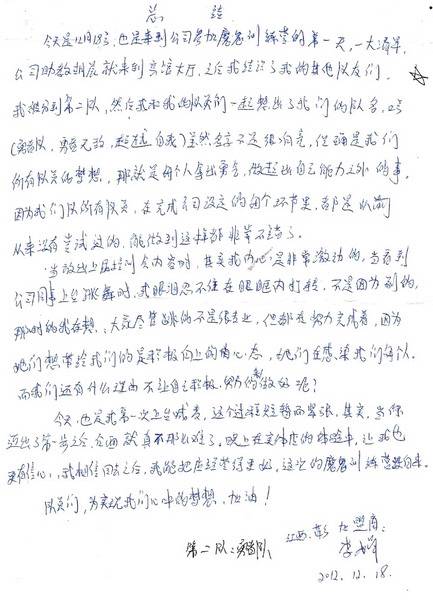 总结
今天是12月18号，也是来到公司参加魔鬼训练营的第一天，一大清早，
公司助教明晨就来到宾馆大厅，之后我结识了我的其他队友们，
我被分到第二队，然后我和我的队员们一起想出了我们的队名，口号
（实战队，勇者无敌，超越自我）虽然名字不是很响亮，但确是我们
所有队员的梦想，那就是每个人拿出勇气，做超出自己能力之外的事，
因为我们队所有队员，在完成公司设定的每个环节里，都是以前
从来没有尝试过的，能做到这样都非常不错了。
当放出上届培训会内容时，其实我内心是非常激动的，当看到
公司同事上台跳舞时，我眼泪忍不住在眼眶内打转，不是因为别的，
那时的我在想，大家尽管跳的不是很专业，但都在努力完成着，因为
她们想带给我们的是积极向上的心态，她们在感染我们每个人，
而我们还有什么理由不让自己积极、努力的做好呢？
今天，也是我第一次上台代表，这个过程短暂而紧张，其实，当你
迈出了第一步之后，后面就真不那么难了，晚上在实体店的体验中，让我也
更有信心，我相信回去之后，我能把店经营得更好，这次的魔鬼训练营没白来。
队员们，为实现我们心中的梦想，加油！
江西 彭 加盟商：
第二队：实战队
李
2012.12.18.